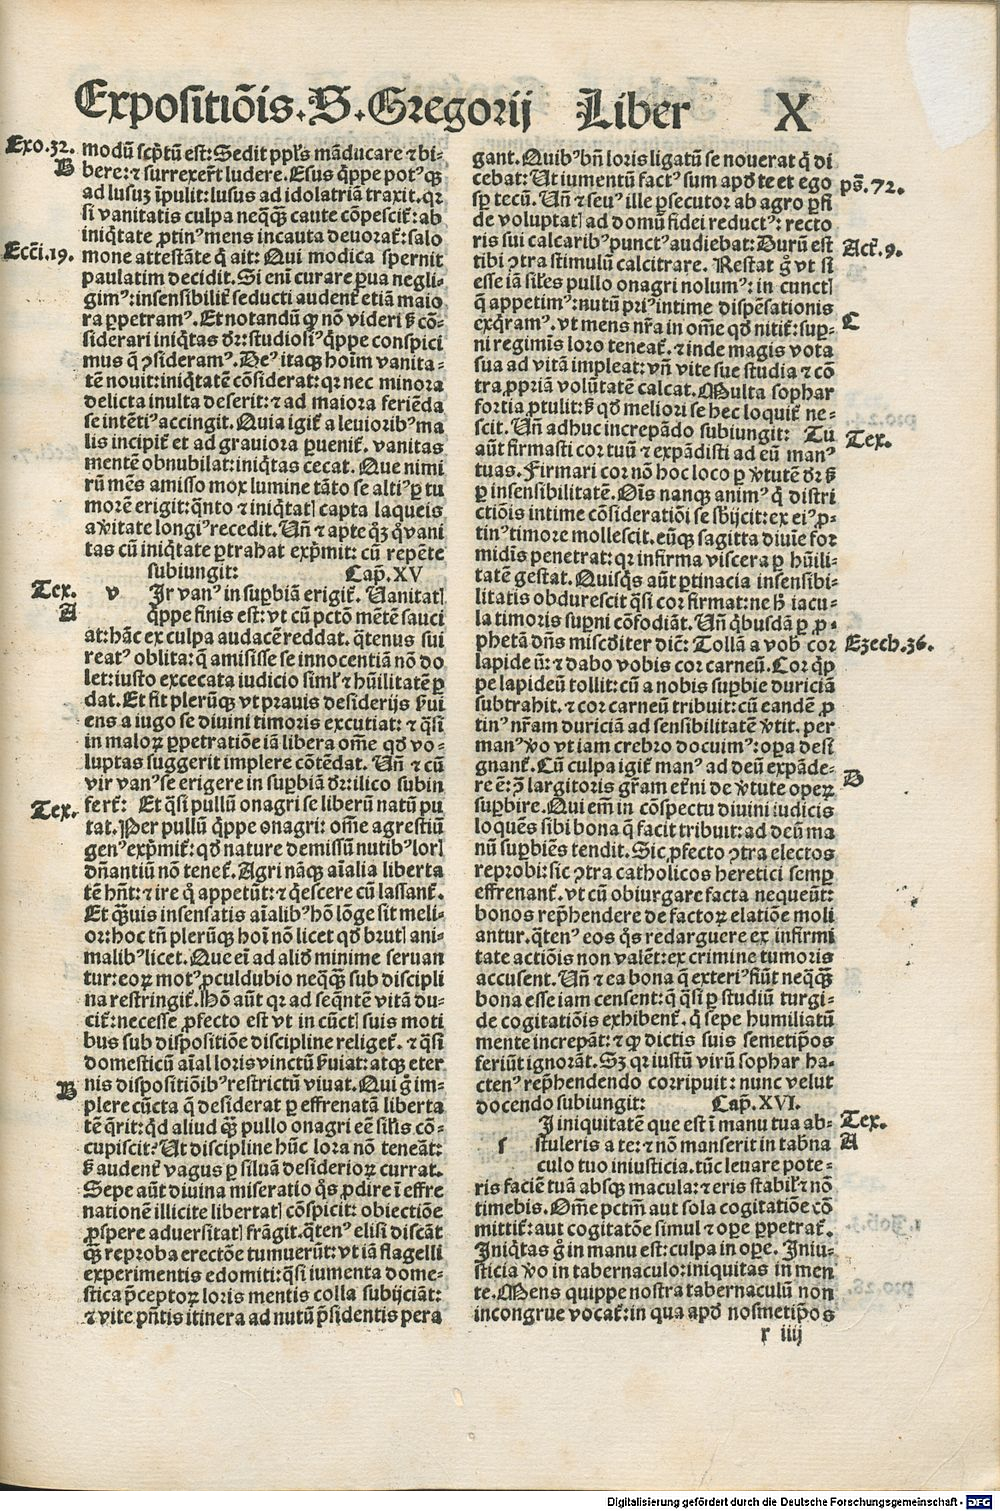 Expositiõis. S. Gregorij Liber X
Exo.32.
B
Ecci.19.
Tex.
A
Tex.
B
modũ scp̃tũ est: Sedit ppl's mãducare ⁊ bi-
bere: ⁊ surrexer̃t ludere. Esus q̃ppe potꝰqꝫ
ad lusuꝫ ĩpulit: lusus ad idolatriã traxit. qꝛ
si vanitatis culpa neqꝫq̃ caute cõpescit᷑: ab
iniq̃tate ꝓtinꝰ mens incauta deuorat᷑: salo
mone attestãte q̃ ait: Qui modica spernit
paulatim decidit. Si enĩ curare ꝑua negli-
gimꝰ: insensibilit᷑ seducti audent᷑ etiã maio
ra ꝑpetramꝰ. Et notandũ ꝙ nõ videri sꝫ cõ-
siderari iniq̃tas dr̃: studiosiꝰ q̃ppe conspici
mus q̃ ꝯsideramꝰ. Deꝰ itaqꝫ hoĩm vanita-
tẽ nouit: iniq̃tatẽ cõsiderat: qꝛ nec minora
delicta inulta deserit: ⁊ ad maiora feriẽda
se intẽtiꝰ accingit. Quia igit᷑ a leuioribꝰ ma
lis incipit᷑ et ad grauiora ꝑuenit᷑. vanitas
mentẽ obnubilat: iniq̃tas cecat. Que nimi
rũ mẽs amisso mox lumine tãto se altiꝰ ꝑ tu
morẽ erigit: q̃nto ⁊ iniq̃tatꝭ capta laqueis
a v̓itate longiꝰ recedit. Uñ ⁊ apte q̃ꝫ q̃ vani
tas cũ iniq̃tate ꝑtrahat exp̃mit: cũ repẽte
subiungit: Cap̃. XV
v Ir vanꝰ in suꝑbiã erigit᷑. Uanitatꝭ
q̃ppe finis est: vt cũ pctõ mẽtẽ sauci
at: hãc ex culpa audacẽ reddat. q̃tenus sui
reatꝰ oblita: q̃ amisisse se innocentiã nõ do
let: iusto excecata iudicio siml' ⁊ hũilitatẽ ꝑ
dat. Et fit plerũqꝫ vt prauis desiderijs s̓ui
ens a iugo se diuini timoris excutiat: ⁊ q̃si
in maloꝝ ꝑpetratiõe iã libera om̃e qd̓ vo-
luptas suggerit implere cõtẽdat. Uñ ⁊ cũ
vir vanꝰ se erigere in suꝑbiã dr̃: ilico subin
fert᷑: Et q̃si pullũ onagri se liberũ natũ pu
tat. Per pullũ q̃ppe onagri: om̃e agrestiũ
genꝰ exp̃mit᷑: qd̓ nature demissũ nutibꝰ lorꝭ
dñantiũ nõ tenet᷑. Agri nãqꝫ aĩalia liberta
tẽ hñt: ⁊ ire q̃ appetũt: ⁊ q̃escere cũ lassant᷑.
Et q̃uis insensatis aĩalibꝰ hõ lõge sit meli-
or: hoc tñ plerũqꝫ hoĩ nõ licet qd̓ brutꝭ ani-
malibꝰ licet. Que eĩ ad aliud minime seruan
tur: eoꝝ motꝰ ꝓculdubio neqꝫq̃ sub discipli
na restringit᷑. Hõ aũt qꝛ ad seq̃ntẽ vitã du-
cit᷑: necesse ꝓfecto est vt in cũctꝭ suis moti
bus sub dispositiõe discipline religet᷑. ⁊ q̃si
domesticũ aĩal loris vinctũ s̓uiat: atqꝫ eter
nis dispositiõibꝰ restrictũ viuat. Qui g̊ im-
plere cũcta q̃ desiderat ꝑ effrenatã liberta
tẽ q̃rit: qd̓ aliud q̃ pullo onagri eẽ sil'is cõ-
cupiscit? Ut discipline hũc lora nõ teneãt:
sꝫ audent᷑ vagus ꝑ siluã desiderioꝝ currat.
Sepe aũt diuina miseratio q̃s ꝓdire ĩ effre
nationẽ illicite libertatꝭ cõspicit: obiectiõe
ꝓspere aduersitatꝭ frãgit. q̃tenꝰ elisi discãt
q̃ reproba erectõe tumuerũt: vt iã flagelli
experimentis edomiti: q̃si iumenta dome-
stica p̃ceptoꝝ loris mentis colla subijciãt:
⁊ vite p̃ñtis itinera ad nutũ p̃sidentis pera
gant. Quibꝰ bñ loris ligatũ se nouerat q̃ di
cebat: Ut iumentũ factꝰ sum apd̓ te et ego
sꝑ tecũ. Uñ ⁊ seuꝰ ille ꝑsecutor ab agro ꝑfi
de voluptatꝭ ad domũ fidei reductꝰ: recto
ris sui calcaribꝰ punctꝰ audiebat: Durũ est
tibi ꝯtra stimulũ calcitrare. Restat g̊ vt si
esse iã sil'es pullo onagri nolumꝰ: in cunctꝭ
q̃ appetimꝰ: nutũ priꝰ intime dispẽsationis
exq̃ramꝰ. vt mens nr̃a in om̃e qd̓ nitit᷑: suꝑ-
ni regimis loro teneat᷑. ⁊ inde magis vota
sua ad vitã impleat: vñ vite sue studia ⁊ cõ
tra ꝓpriã volũtatẽ calcat. Multa sophar
fortia ꝓtulit: sꝫ qd̓ meliori se hec loquit᷑ ne-
scit. Uñ adhuc increpãdo subiungit: Tu
aũt firmasti cor tuũ ⁊ expãdisti ad eũ manꝰ
tuas. Firmari cor nõ hoc loco ꝑ v̓tutẽ dr̃ sꝫ
ꝑ insensibilitatẽ. Oĩs nanqꝫ animꝰ q̃ distri
ctiõis intime cõsideratiõi se sb̓ijcit: ex eiꝰ ꝓ-
tinꝰ timore mollescit. eũqꝫ sagitta diuie for
midĩs penetrat: qꝛ infirma viscera ꝑ hũili-
tatẽ gestat. Quisq̃s aũt ꝑtinacia insensibi-
litatis obdurescit q̃si cor firmat: ne hꝫ iacu-
la timoris suꝑni cõfodiãt. Uñ q̃busdã ꝑ ꝓ-
phetã dñs misc̃diter dic̃: Tollã a vob̓ cor
lapideũ: ⁊ dabo vobis cor carneũ. Cor q̃p
pe lapideũ tollit: cũ a nobis suꝑbie duriciã
subtrahit. ⁊ cor carneũ tribuit: cũ eandẽ ꝓ
tinꝰ nr̃am duriciã ad sensibilitatẽ v̓tit. per
manꝰ v̓o vt iam crebro docuimꝰ: oꝑa desi
gnant᷑. Cũ culpa igit᷑ manꝰ ad deũ expãde-
re ẽ: ꝯ̃ largitoris gr̃am et᷑ni de v̓tute opeꝝ
suꝑbire. Qui em̃ in cõspectu diuini iudicis
loquẽs sibi bona q̃ facit tribuit: ad deũ ma
nũ suꝑbiẽs tendit. Sic ꝓfecto ꝯtra electos
reprobi: sic ꝯtra catholicos heretici semꝑ
effrenant᷑. vt cũ obiurgare facta nequeũt:
bonos rep̃hendere de factoꝝ elatiõe moli
antur. q̃tenꝰ eos q̃s redarguere ex infirmi
tate actiõis non valẽt: ex crimine tumoris
accusent. Uñ ⁊ ea bona q̃ exteriꝰ fiũt neqꝫq̃
bona esse iam censent: q̃ q̃si ꝑ studiũ turgi-
de cogitatiõis exhibent᷑. q̃ sepe humiliatũ
mente increpãt: ⁊ ꝙ dictis suis semetip̃os
feriũt ignorãt. Sꝫ qꝛ iustũ virũ sophar ha-
ctenꝰ rep̃hendendo corripuit: nunc velut
docendo subiungit: Cap̃. XVI.
s I iniquitatẽ que est ĩ manu tua ab-
stuleris a te: ⁊ nõ manserit in tab̃na
culo tuo iniusticia. tũc leuare pote-
ris faciẽ tuã absqꝫ macula: ⁊ eris stabil' ⁊ nõ
timebis. Om̃e pctm̃ aut sola cogitatiõe cõ
mittit᷑: aut cogitatõe simul ⁊ oꝑe ꝑpetrat᷑.
Iniq̃tas g̊ in manu est: culpa in oꝑe. Iniu-
sticia v̓o in tabernaculo: iniquitas in men
te. Mens quippe nostra tabernaculũ non
incongrue vocat᷑: in qua apd̓ nosmetip̃os
ps̃.72.
Act᷑.9.
C
Tex.
Ezech.36.
D
Tex.
A
x iiij
Digitalisierung gefördert durch die Deutsche Forschungsgemeinschaft - DFG